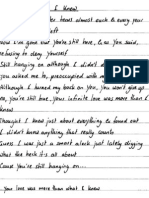 I knew
after tears almost each & every year
left
Now I've gone but you're still here, & as you said,
refusing to deny yourself
Still hanging on although I didn't
you asked me to, preoccupied with my
Although I turned my back on you, you won't give up
on, you're still here, your infinite love was more than I
knew
Thought I knew just about everything & found out
I didn't know anything that really counts
Guess I was just a smart aleck just lately digging
what the heck it's all about
Cause you're still hanging on...
your love was more than what I knew